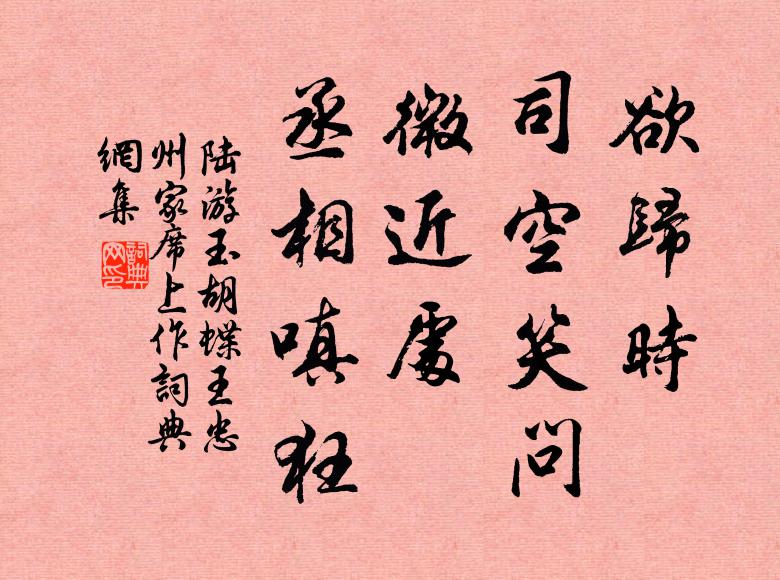 欲歸時
司空笑問
微近處
丞相嗔狂
陸游玉胡蝶王忠
州家席上作詞典
網集
詞典網印